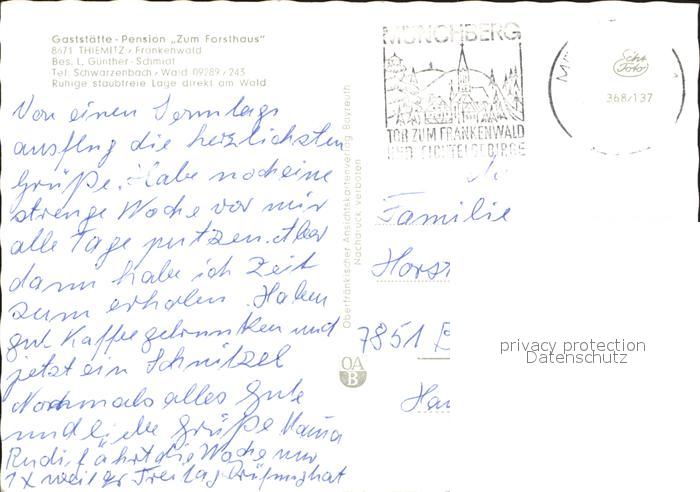 Gaststätte - Pension „Zum Forsthaus"
8671 THIEMITZ / Frankenwald
Bes. L. Günther - Schmidt
Tel. Schwarzenbach / Wald 09289 / 243
Ruhige staubfreie Lage direkt am Wald
Von einen Sonntags
ausflug die herzlichsten
Grüße. Habe noch eine
strenge Woche vor mir
alle Tage putzen. Aber
dann habe ich Zeit
zum erholen. Haben
gut Kaffee getrunken und
jetzt ein Schnitzel
Nochmals alles Gute
und liebe Grüße Mama
Rudi, fährt die Woche nur
1x weil er Freitag Prüfung hat
Oberfränkischer Ansichtskartenverlag Bayreuth
Nachdruck verboten
OA
B
MÜNCHBERG
TOR ZUM FRANKENWALD
UND FICHTELGEBIRGE
M
Echt
Foto
368/137
Familie
Horst
7851 B
Hau
privacy protection
Datenschutz